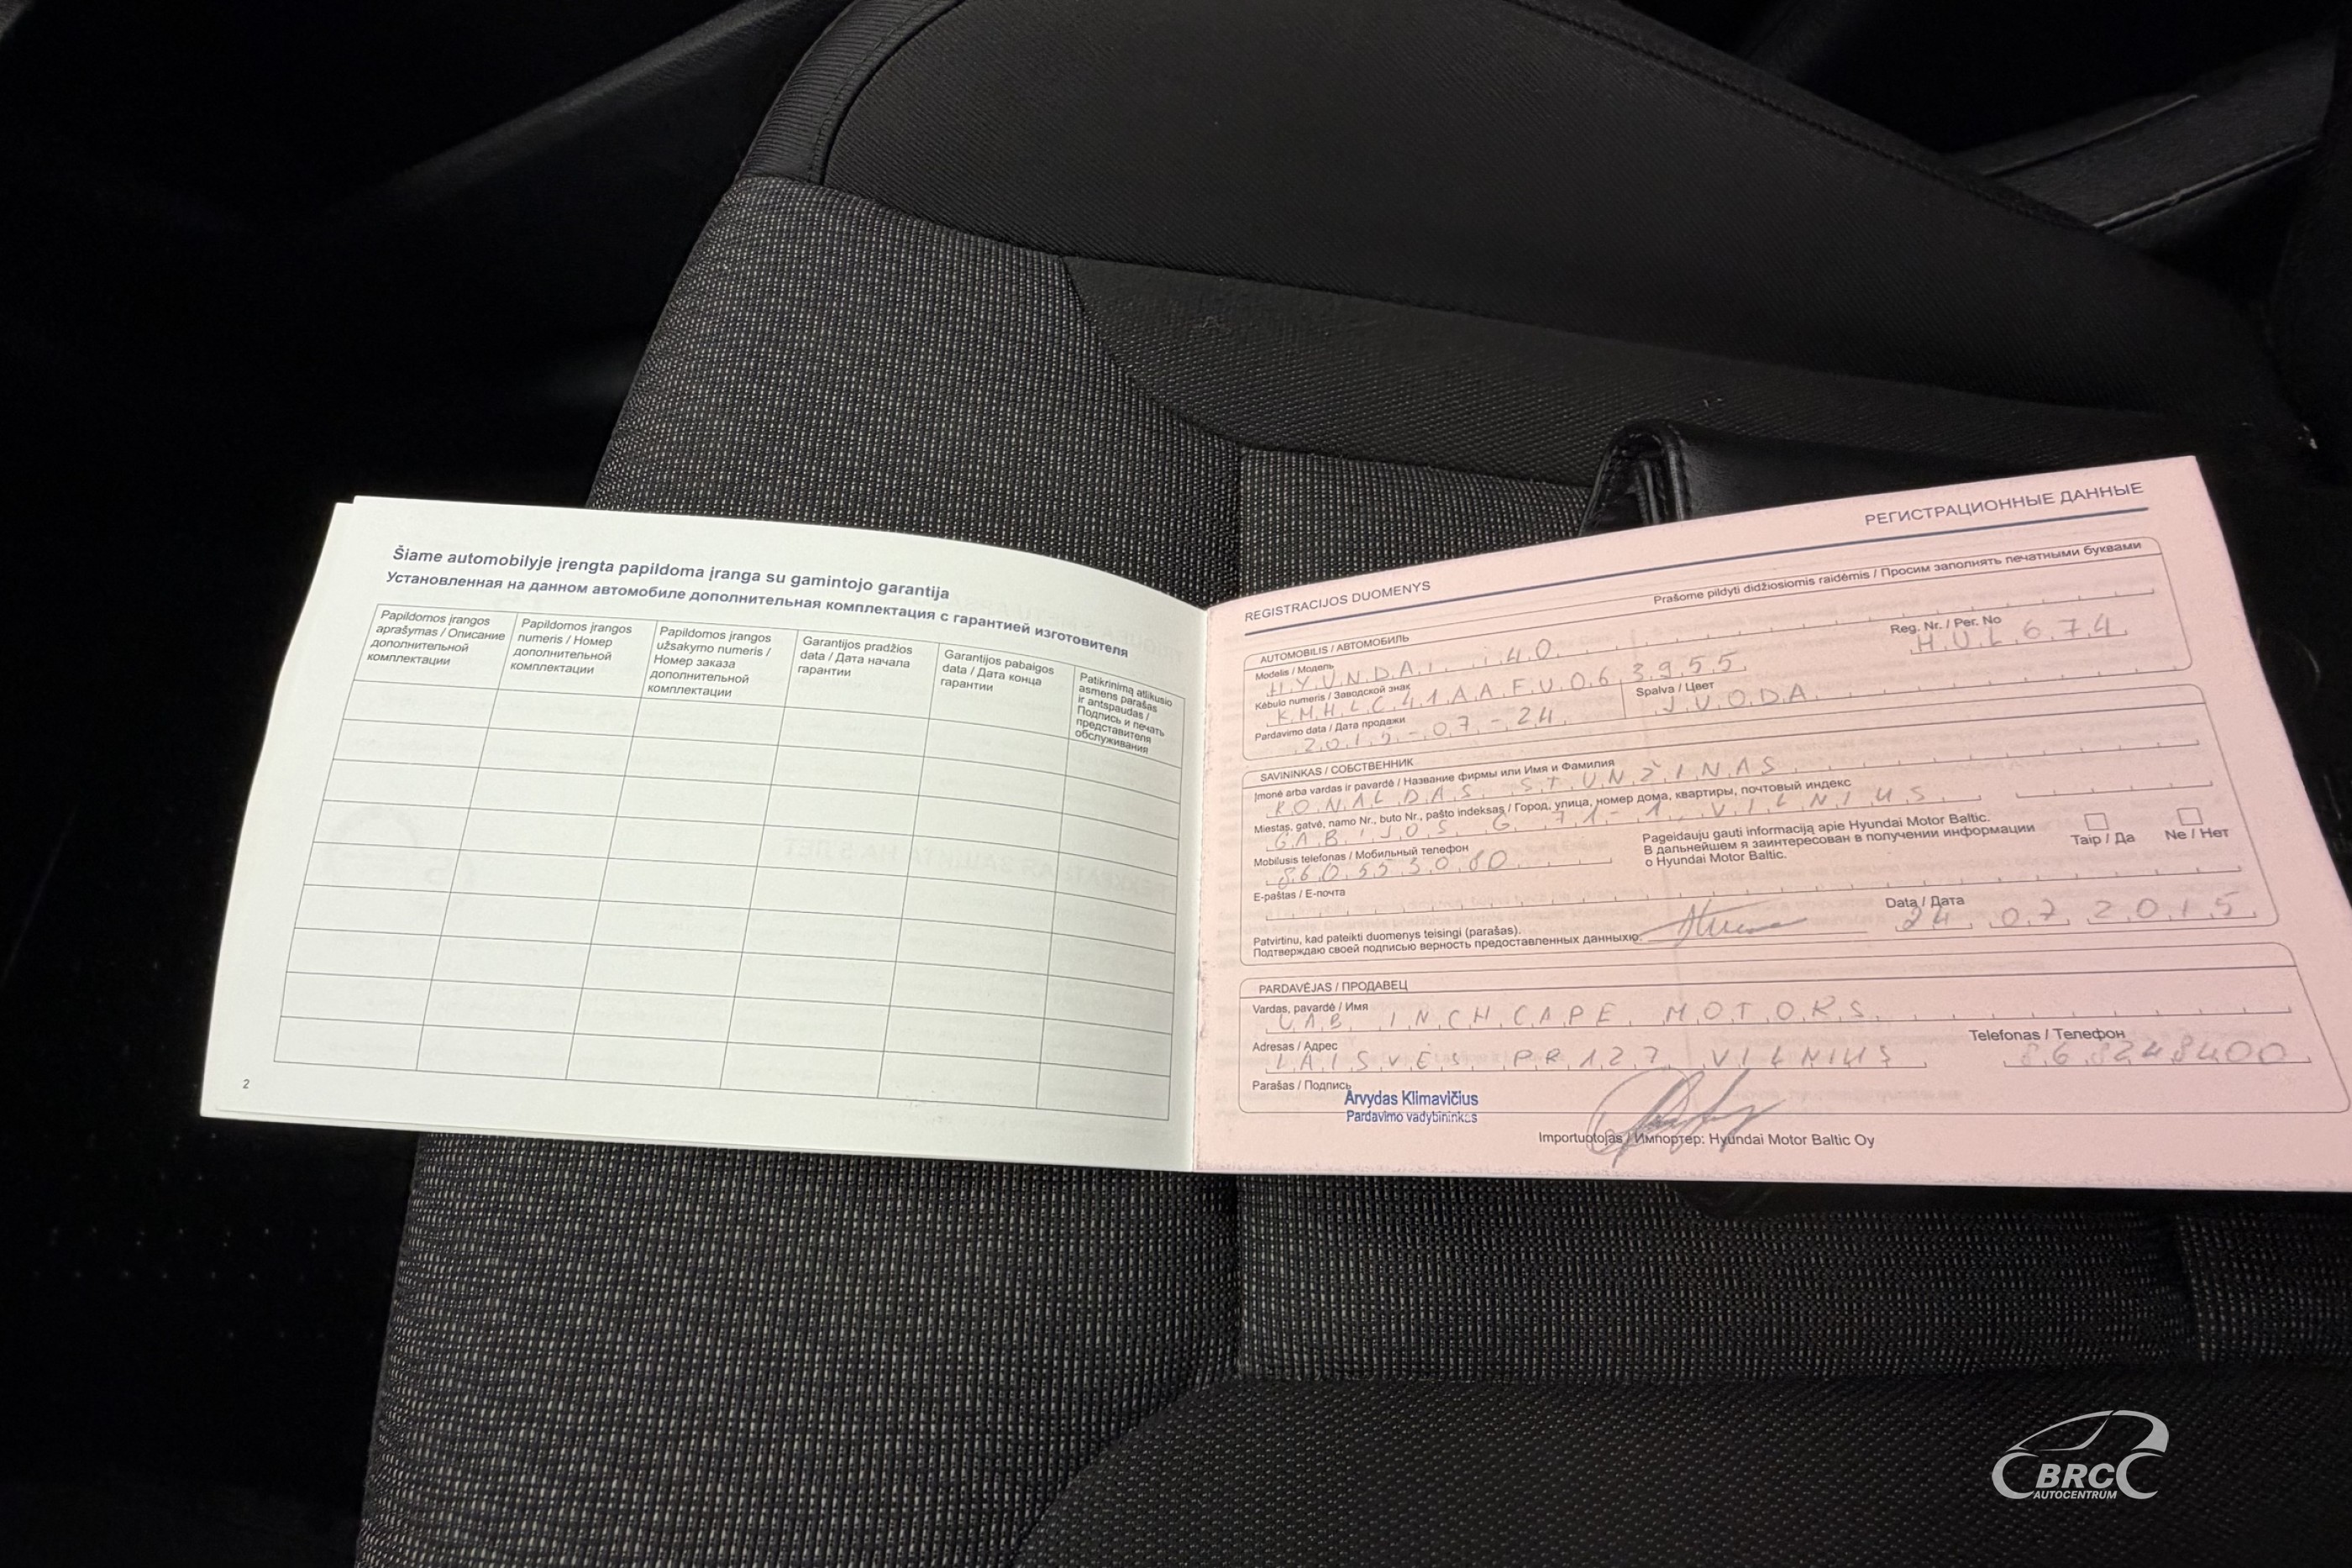 Šiame automobilyje įrengta papildoma įranga su gamintojo garantija
Установленная на данном автомобиле дополнительная комплектация с гарантией изготовителя
Papildomos įrangos aprašymas / Описание дополнительной комплектации
Papildomos įrangos numeris / Номер дополнительной комплектации
Papildomos įrangos užsakymo numeris / Номер заказа дополнительной комплектации
Garantijos pradžios data / Дата начала гарантии
Garantijos pabaigos data / Дата конца гарантии
Patikrinimą atlikusio asmens parašas ir antspaudas / Подпись и печать представителя обслуживания
2
REGISTRACIJOS DUOMENYS
РЕГИСТРАЦИОННЫЕ ДАННЫЕ
Prašome pildyti didžiosiomis raidėmis / Просим заполнять печатными буквами
AUTOMOBILIS / АВТОМОБИЛЬ
Modelis / Модель
HYUNDAI i40
Reg. Nr. / Рег. No
HUL674
Kėbulo numeris / Заводской знак
KMHLC41AAFU063955
Pardavimo data / Дата продажи
2015-07-24
Spalva / Цвет
JUODA
SAVININKAS / СОБСТВЕННИК
Įmonė arba vardas ir pavardė / Название фирмы или Имя и Фамилия
RONALDAS STUNŽINAS
Miestas, gatvė, namo Nr., buto Nr., pašto indeksas / Город, улица, номер дома, квартиры, почтовый индекс
GABIJOS G. 71-1, VILNIUS
Mobilusis telefonas / Мобильный телефон
Pageidauju gauti informaciją apie Hyundai Motor Baltic.
В дальнейшем я заинтересован в получении информации
о Hyundai Motor Baltic.
Taip / Да
Ne / Нет
E-paštas / Е-почта
Patvirtinu, kad pateikti duomenys teisingi (parašas).
Подтверждаю своей подписью верность предоставленных данныхю.
Data / Дата
24 07 2015
PARDAVĖJAS / ПРОДАВЕЦ
Vardas, pavardė / Имя
UAB INCHCAPE MOTORS
Adresas / Адрес
LAISVĖS PR 127 VILNIUS
Telefonas / Телефон
Parašas / Подпись
Arvydas Klimavičius
Pardavimo vadybininkas
Importuotojas / Импортер: Hyundai Motor Baltic Oy
BRC
AUTOCENTRUM